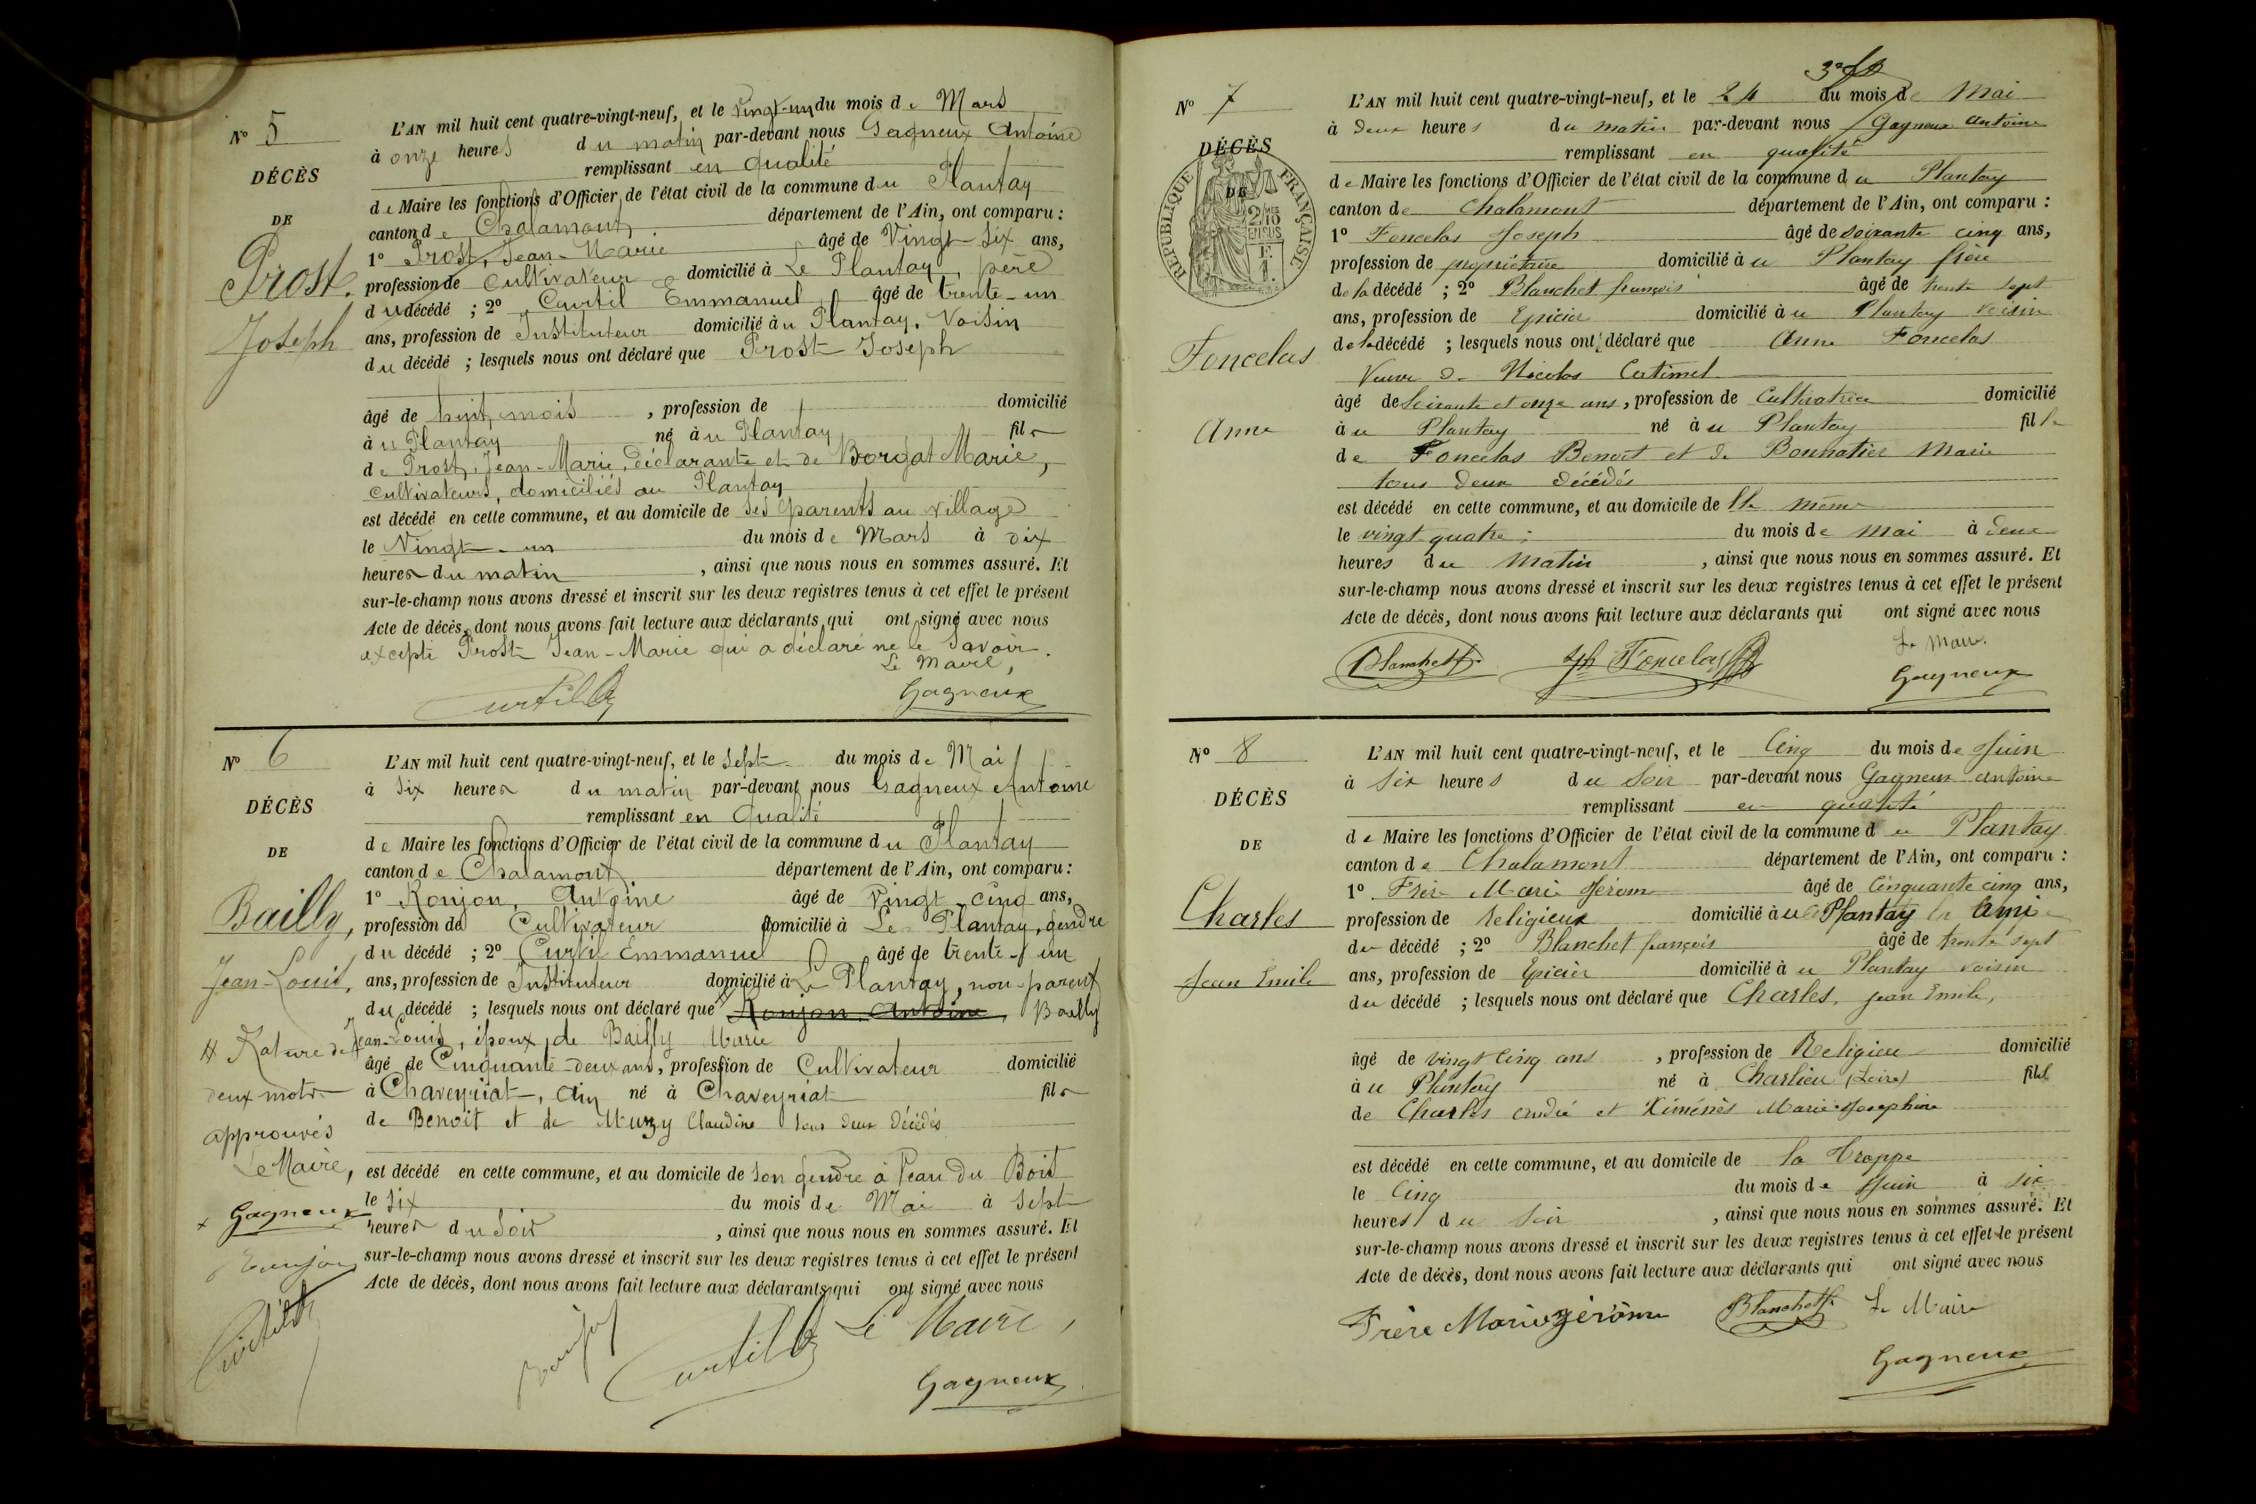 N° 5
DÉCÈS
DE
Prost
Joseph
L'AN mil huit cent quatre-vingt-neuf, et le vingt-un du mois de Mars
à onze heures du matin par-devant nous Gagneux Antoine
remplissant en qualité
de Maire les fonctions d'Officier de l'état civil de la commune du Plantay
canton de Chalamont département de l'Ain, ont comparu :
1° Prost, Jean-Marie âgé de Vingt-six ans,
profession de Cultivateur domicilié à Le Plantay, père
du décédé ; 2° Curtil Emmanuel âgé de trente-un
ans, profession de Instituteur domicilié au Plantay, Voisin
du décédé ; lesquels nous ont déclaré que Prost Joseph
âgé de huit mois , profession de domicilié
à u Plantay né à u Plantay fils
de Prost, Jean-Marie, déclarante et de Borgat Marie,
cultivateurs, domiciliés au Plantay
est décédé en cette commune, et au domicile de ses parents au village
le Vingt-un du mois de Mars à dix
heures du matin , ainsi que nous nous en sommes assuré. Et
sur-le-champ nous avons dressé et inscrit sur les deux registres tenus à cet effet le présent
Acte de décès, dont nous avons fait lecture aux déclarants qui ont signé avec nous
excepté Prost Jean-Marie qui a déclaré ne le savoir.
Le Maire,
Curtil Gagneux
N° 6
DÉCÈS
DE
Bailly,
Jean-Louis,
# Rature de
deux mots
approuvés
Le Maire,
x Gagneux
Ronjon
Curtil
L'AN mil huit cent quatre-vingt-neuf, et le sept du mois de Mai
à six heures du matin par-devant nous Gagneux Antoine
remplissant en qualité
de Maire les fonctions d'Officier de l'état civil de la commune du Plantay
canton de Chalamont département de l'Ain, ont comparu :
1° Ronjon, Antoine âgé de vingt-cinq ans,
profession de Cultivateur domicilié à Le Plantay, gendre
du décédé ; 2° Curtil Emmanuel âgé de trente-un
ans, profession de Instituteur domicilié à Le Plantay, non-parent
du décédé ; lesquels nous ont déclaré que Ronjon Antoine, Bailly
Jean-Louis, époux de Bailly Marie
âgé de Cinquante-deux ans, profession de Cultivateur domicilié
à Chaveyriat, Ain né à Chaveyriat fils
de Benoit et de Muzy Claudine tous deux décédés
est décédé en cette commune, et au domicile de son gendre à Peau du Bois
le six du mois de Mai à sept
heures du soir , ainsi que nous nous en sommes assuré. Et
sur-le-champ nous avons dressé et inscrit sur les deux registres tenus à cet effet le présent
Acte de décès, dont nous avons fait lecture aux déclarants qui ont signé avec nous
Ronjon Curtil Le Maire,
Gagneux
N° 7
DÉCÈS
DE
RÉPUBLIQUE FRANÇAISE
Foncelas
Anne
L'AN mil huit cent quatre-vingt-neuf, et le 24 du mois de Mai
à deux heures du matin par-devant nous Gagneux Antoine
remplissant en qualité
de Maire les fonctions d'Officier de l'état civil de la commune du Plantay
canton de Chalamont département de l'Ain, ont comparu :
1° Foncelas Joseph âgé de soixante cinq ans,
profession de propriétaire domicilié à u Plantay frère
de la décédé ; 2° Blanchet françois âgé de trente sept
ans, profession de Epicier domicilié à u Plantay voisin
de la décédé ; lesquels nous ont déclaré que Anne Foncelas
Veuve de Nicolas Catimel
âgé de Soixante et onze ans, profession de Cultivatrice domicilié
à u Plantay né à u Plantay fille
de Foncelas Benoit et de Bonnatier Marie
tous deux décédés
est décédé en cette commune, et au domicile de elle même
le vingt quatre ; du mois de Mai à deux
heures du Matin , ainsi que nous nous en sommes assuré. Et
sur-le-champ nous avons dressé et inscrit sur les deux registres tenus à cet effet le présent
Acte de décès, dont nous avons fait lecture aux déclarants qui ont signé avec nous
Le Maire.
Blanchet f. Jph Foncelas Gagneux
N° 8
DÉCÈS
DE
Charles
Jean Emile
L'AN mil huit cent quatre-vingt-neuf, et le Cinq du mois de Juin
à six heures du Soir par-devant nous Gagneux Antoine
remplissant en qualité
de Maire les fonctions d'Officier de l'état civil de la commune du Plantay
canton de Chalamont département de l'Ain, ont comparu :
1° Frère Marie Jérome âgé de Cinquante cinq ans,
profession de Religieux domicilié à u Plantay ami
du décédé ; 2° Blanchet françois âgé de trente sept
ans, profession de Epicier domicilié à u Plantay voisin
du décédé ; lesquels nous ont déclaré que Charles, Jean Emile,
âgé de vingt cinq ans , profession de Religieux domicilié
à u Plantay né à Charlieu (Loire) fils
de Charles André et Ximénès Marie-Josephine
est décédé en cette commune, et au domicile de la Trappe
le Cinq du mois de Juin à six
heures du soir , ainsi que nous nous en sommes assuré. Et
sur-le-champ nous avons dressé et inscrit sur les deux registres tenus à cet effet le présent
Acte de décès, dont nous avons fait lecture aux déclarants qui ont signé avec nous
Frère Marie Jérôme Blanchet f. Le Maire
Gagneux